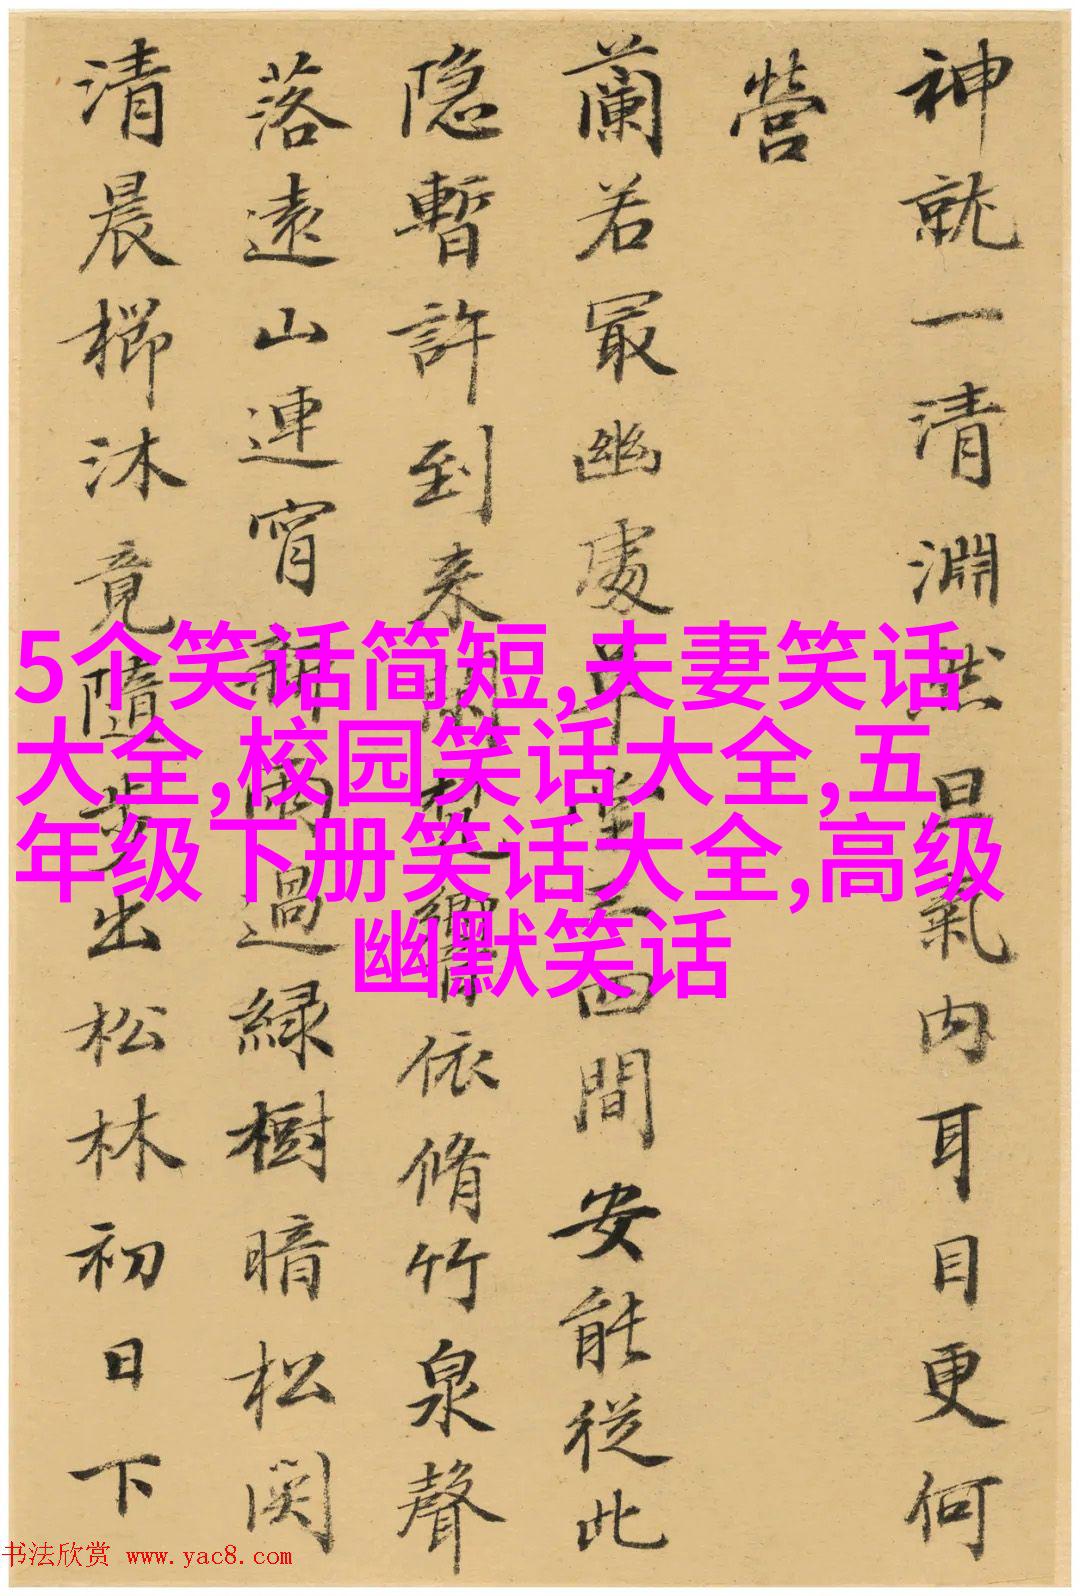 神就一清淵然氣内耳目更何
營
蘭若冣幽處草堂三四間安能從此
隐暫許到来閑依脩竹泉聲
落遠山連宵新雨過緑樹暗松関
清晨櫛沐竟隨步出松林初日下
5个笑话简短,夫妻笑话
大全,校园笑话大全,五
年级下册笑话大全,高级
幽默笑话
书法欣赏 www.yac8.com